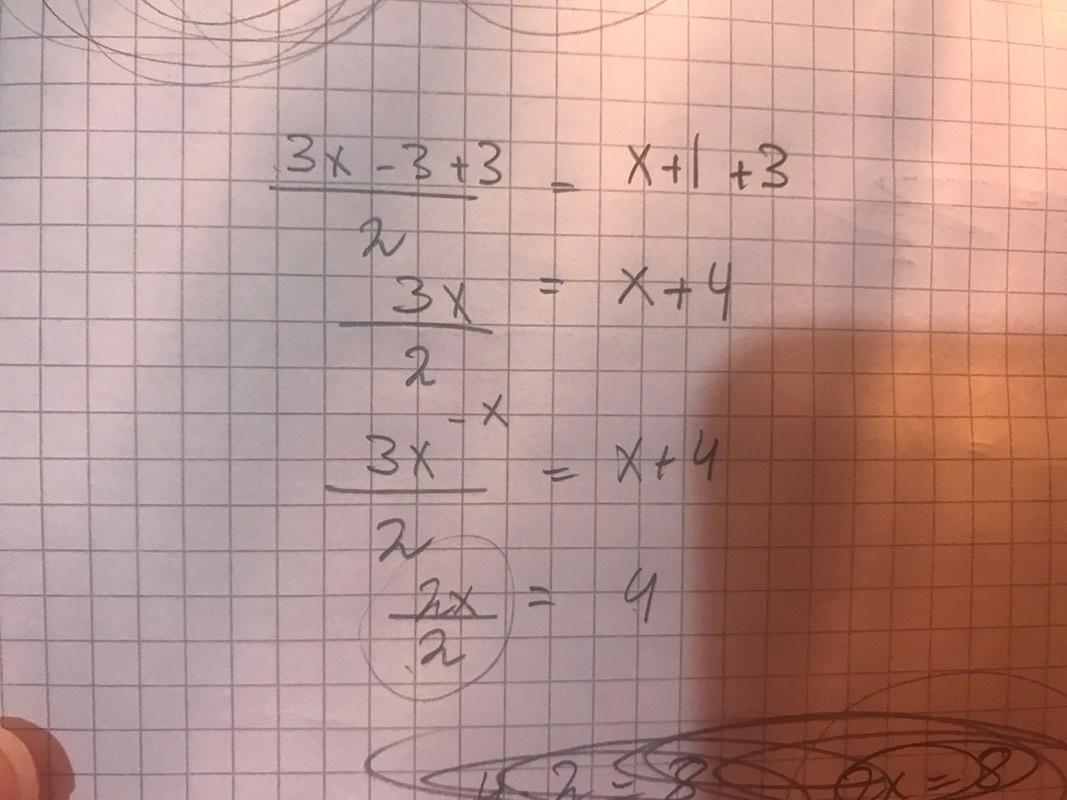 3x - 3 + 3 = x + 1 + 3
2
3x = x + 4
2
- x
3x = x + 4
2
2x = 4
2
4 · 2 = 8 2x = 8